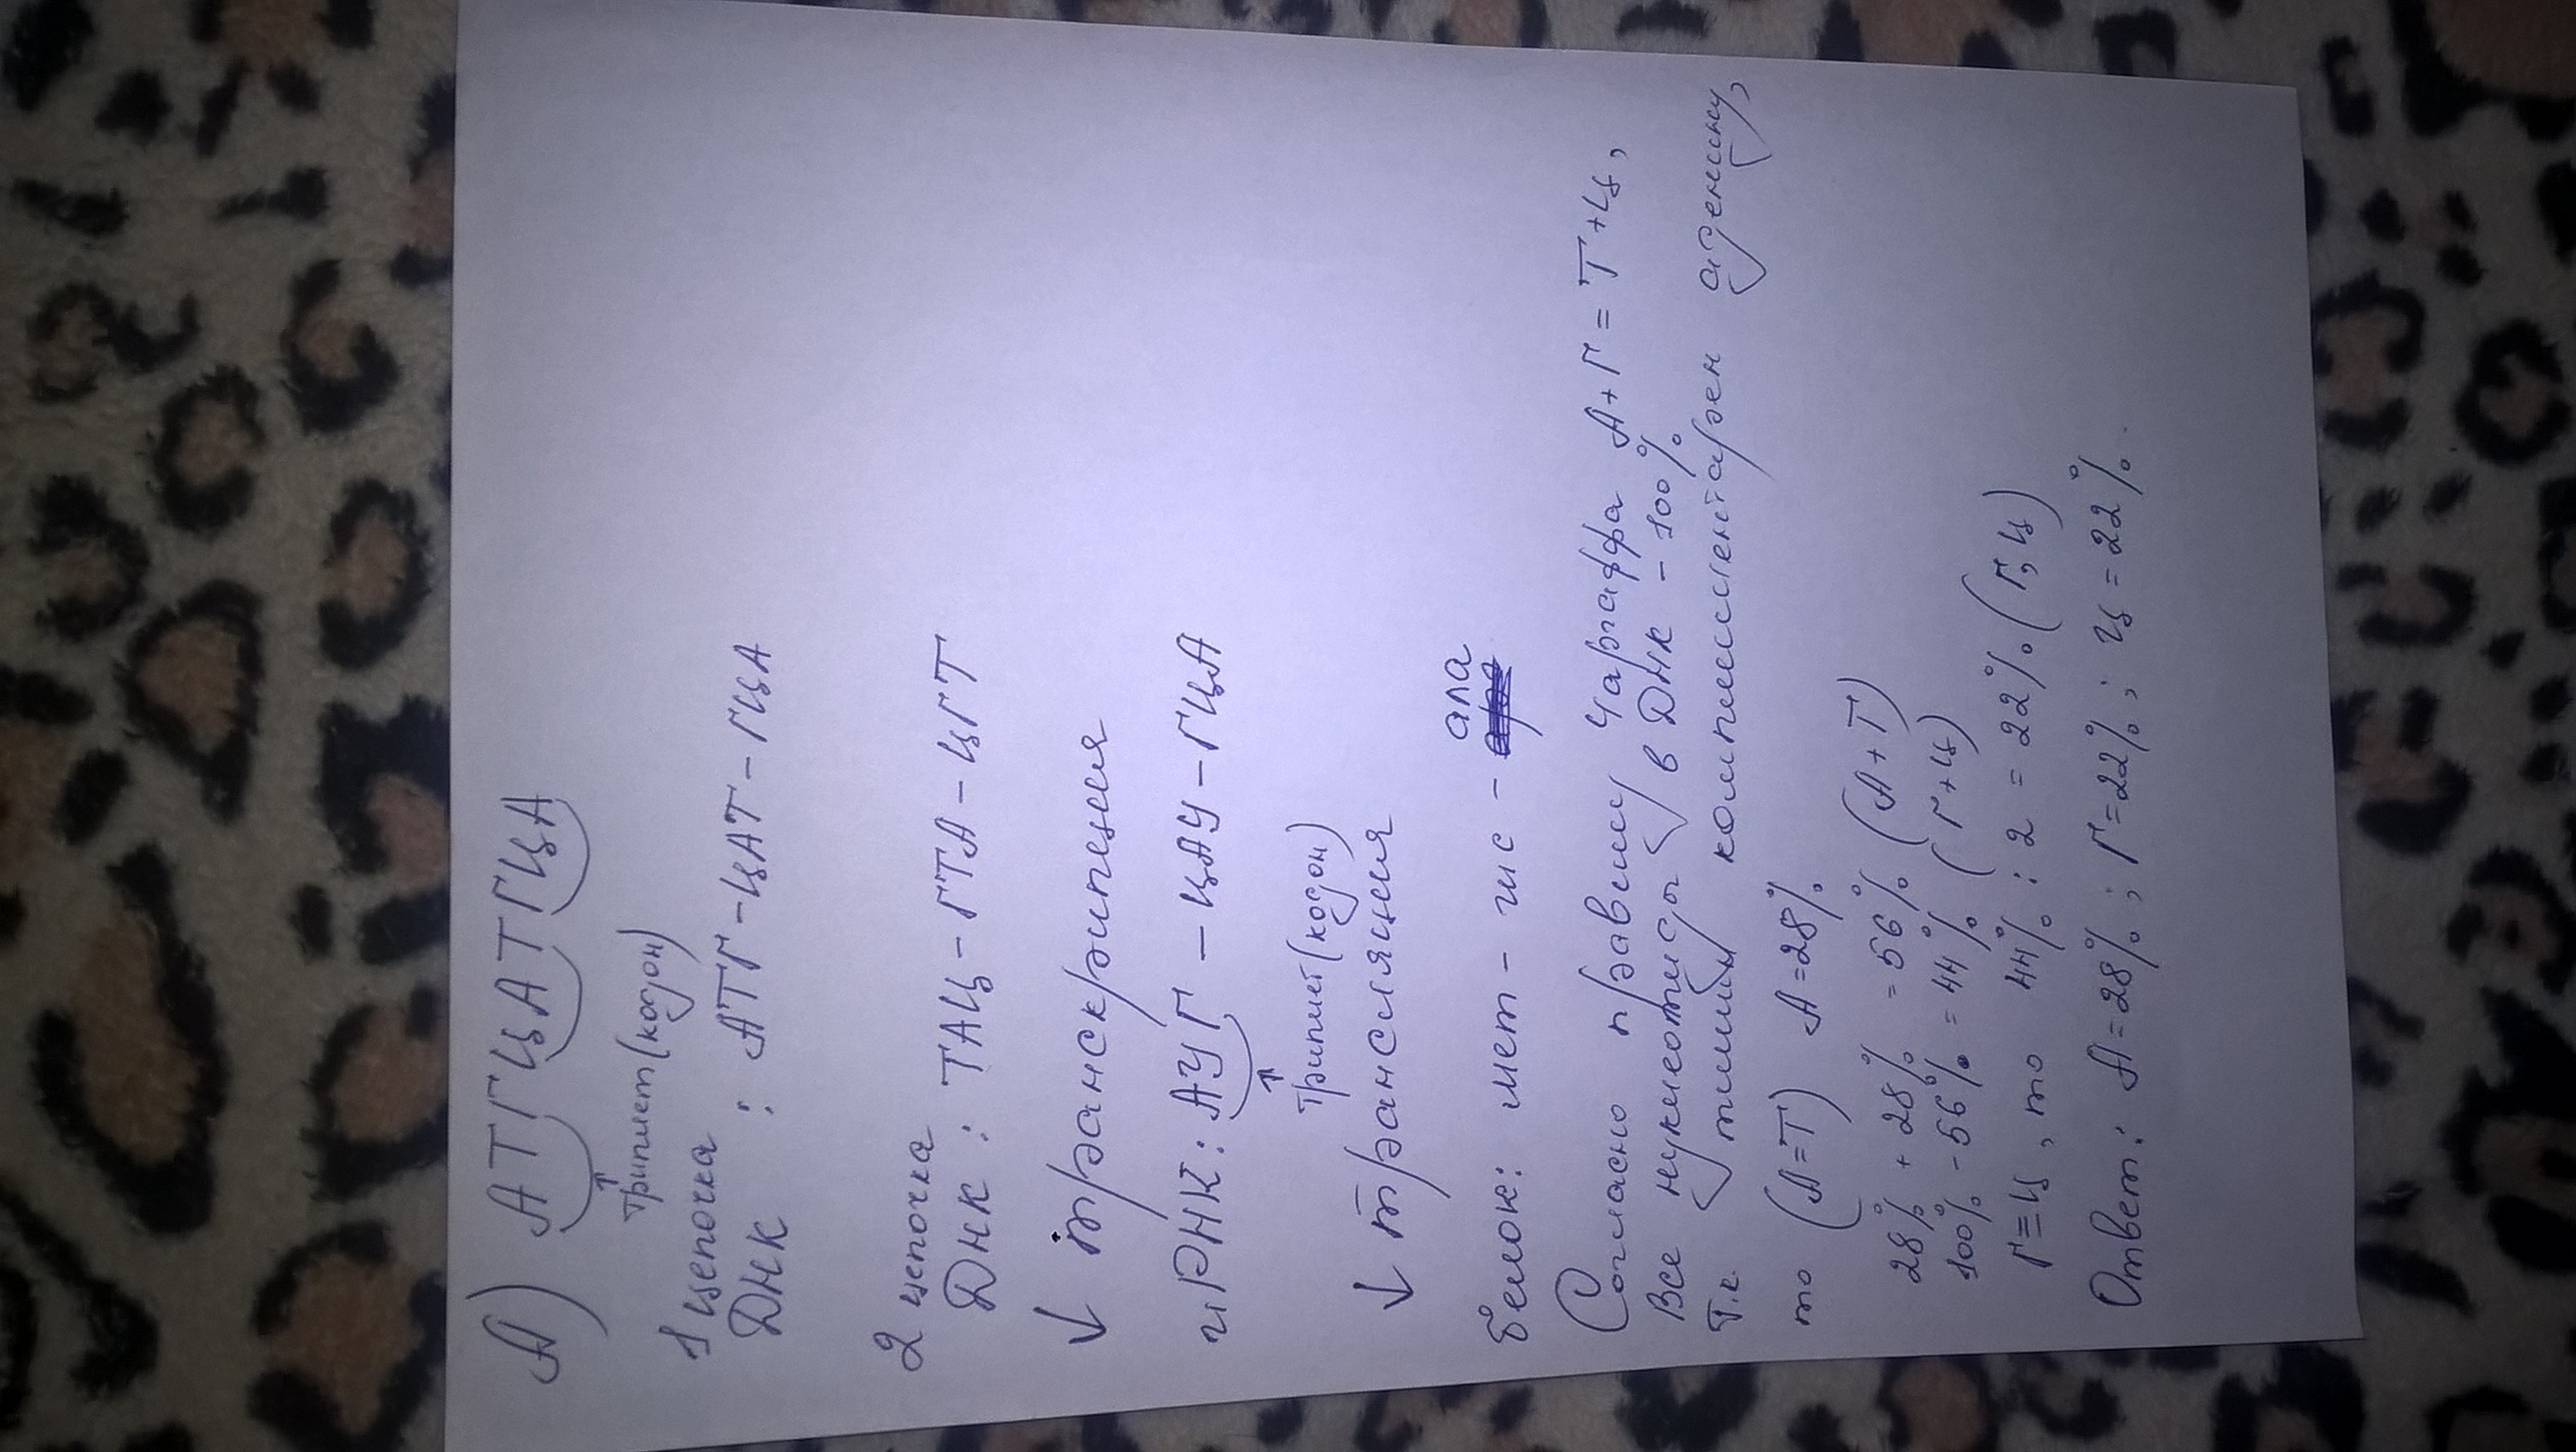 А) АТГЦАТГЦА
↑
триплет (кодон)
1 цепочка
ДНК : АТГ-ЦАТ-ГЦА
2 цепочка
ДНК : ТАЦ-ГТА-ЦГТ
↓ транскрипция
иРНК: АУГ - ЦАУ - ГЦА
↑
триплет (кодон)
↓ трансляция
ала
белок: мет - гис -
Согласно правилу Чаргаффа А+Г = Т+Ц,
Все нуклеотиды в ДНК - 100%
Т.к. тимин комплементарен аденину,
то (А=Т) А=28%
28% + 28% = 56% (А+Т)
100% - 56% = 44% (Г+Ц)
Г≡Ц, то 44% : 2 = 22% (Г, Ц)
Ответ: А=28%; Г=22%; Ц=22%.